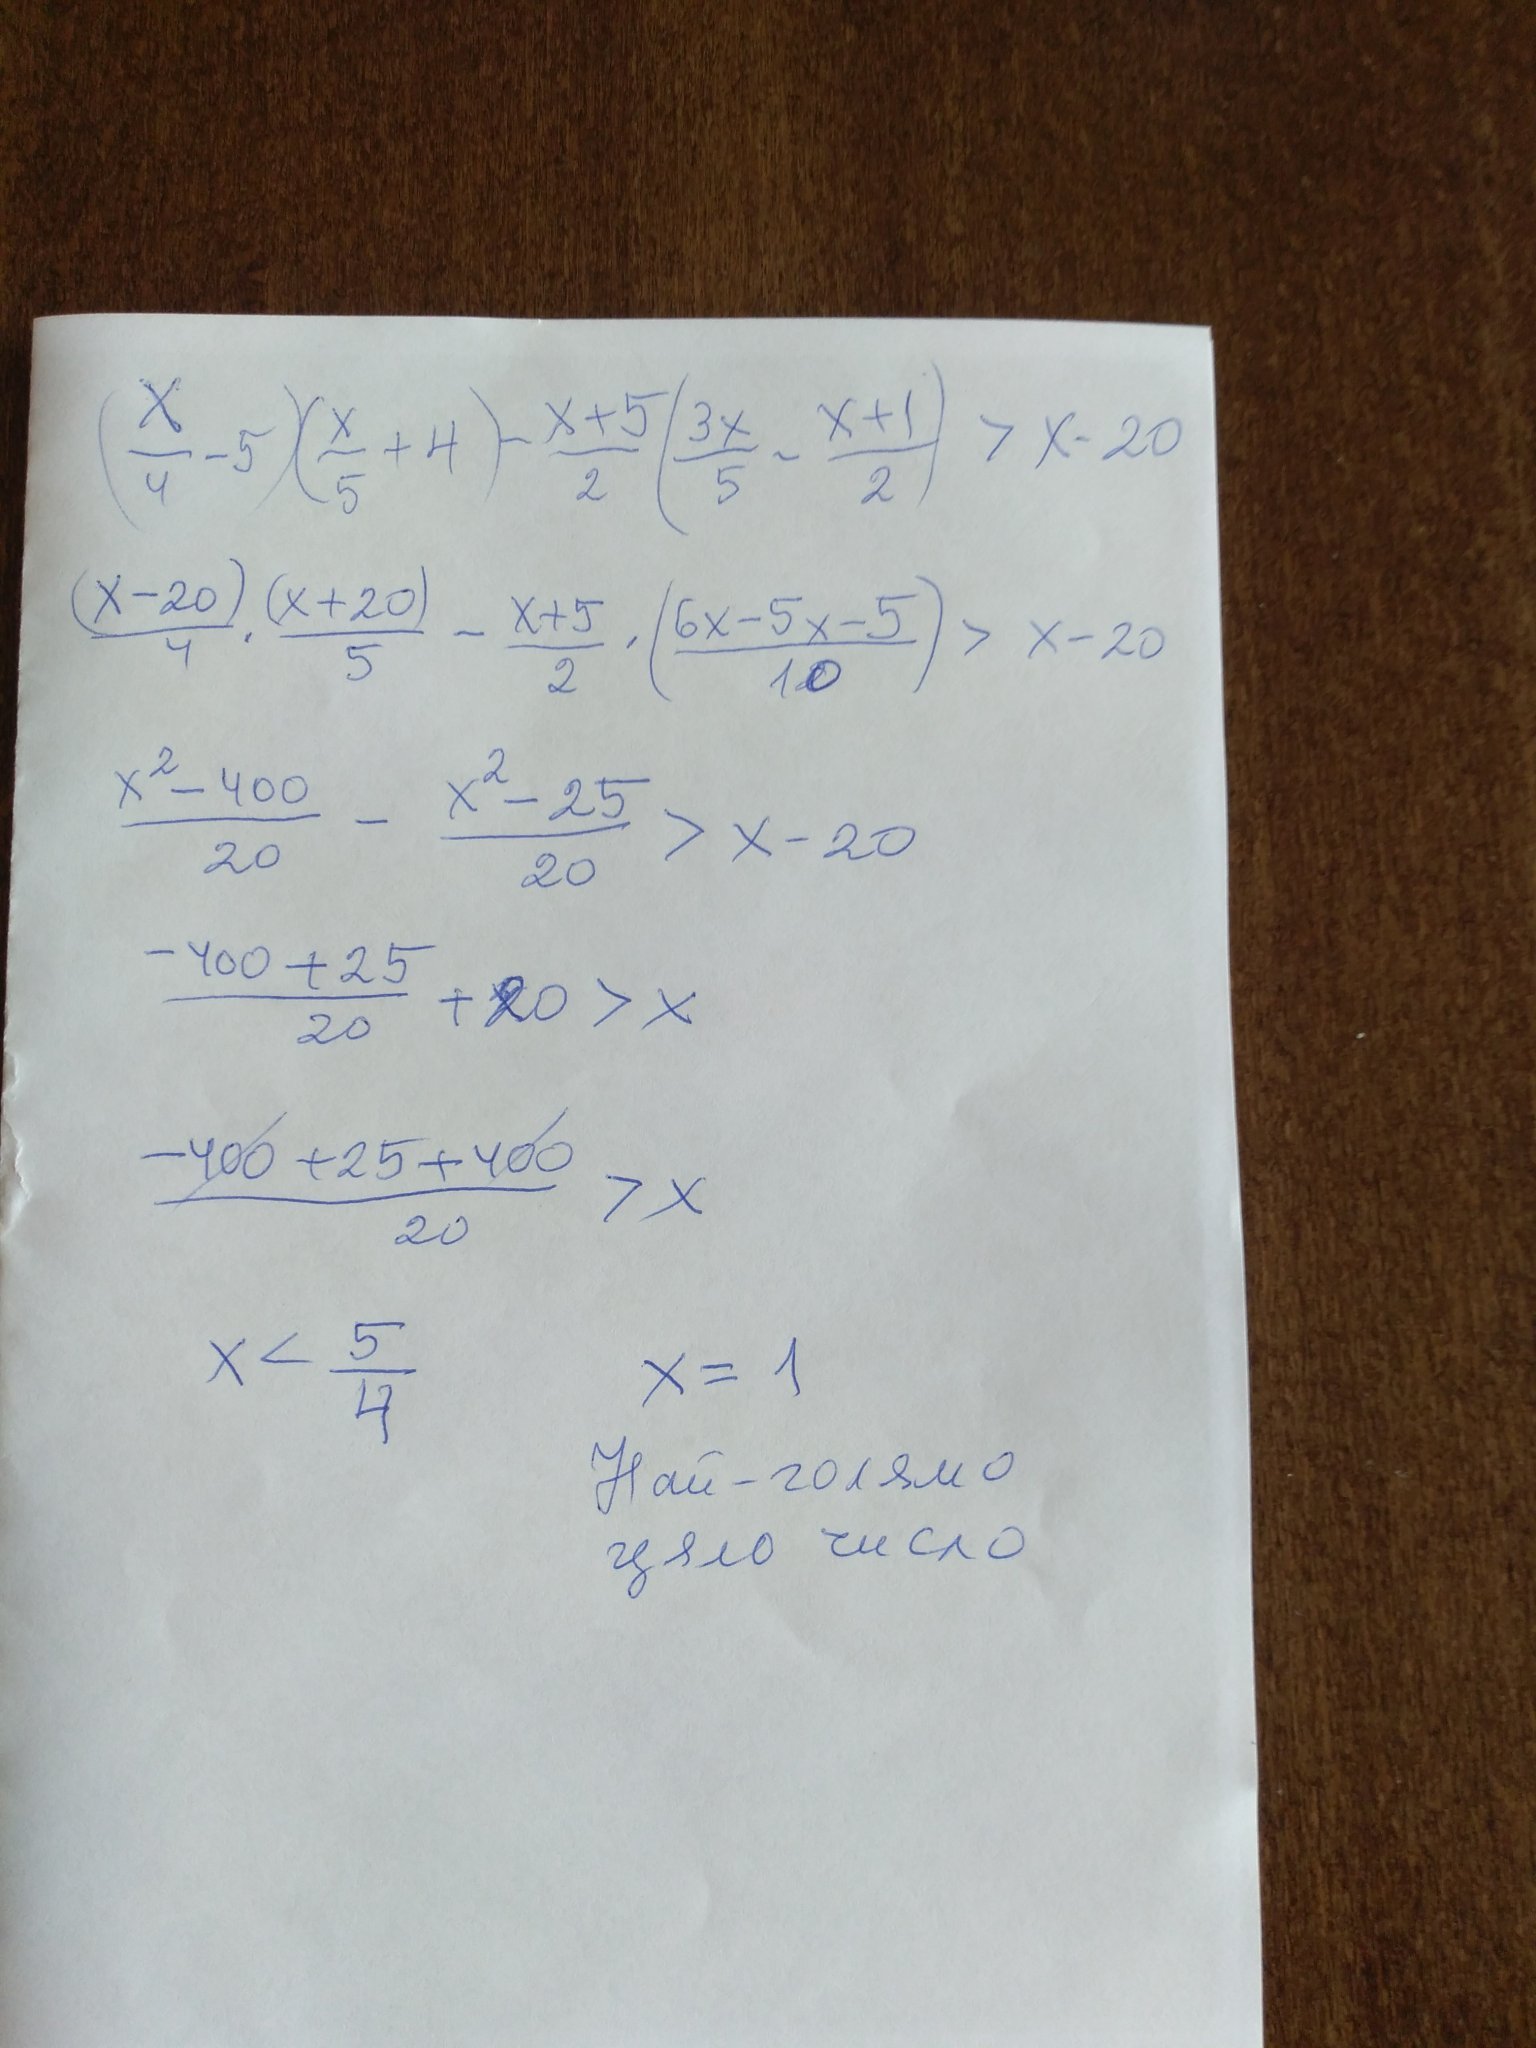 (x/4 - 5)(x/5 + 4) - x+5/2 (3x/5 - x+1/2) > x - 20
(x-20)/4 · (x+20)/5 - x+5/2 · (6x-5x-5/10) > x-20
x²-400/20 - x²-25/20 > x-20
-400+25/20 + 20 > x
-400+25+400/20 > x
x < 5/4 x = 1
Най-голямо
цяло число